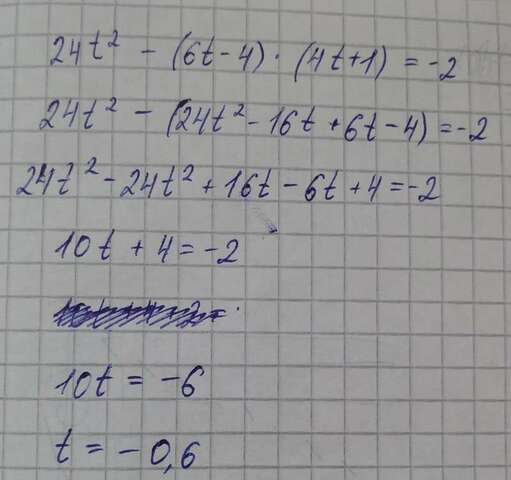 24t² - (6t-4) · (4t+1) = -2
24t² - (24t² - 16t + 6t - 4) = -2
24t² - 24t² + 16t - 6t + 4 = -2
10t + 4 = -2
10t = -6
t = -0,6